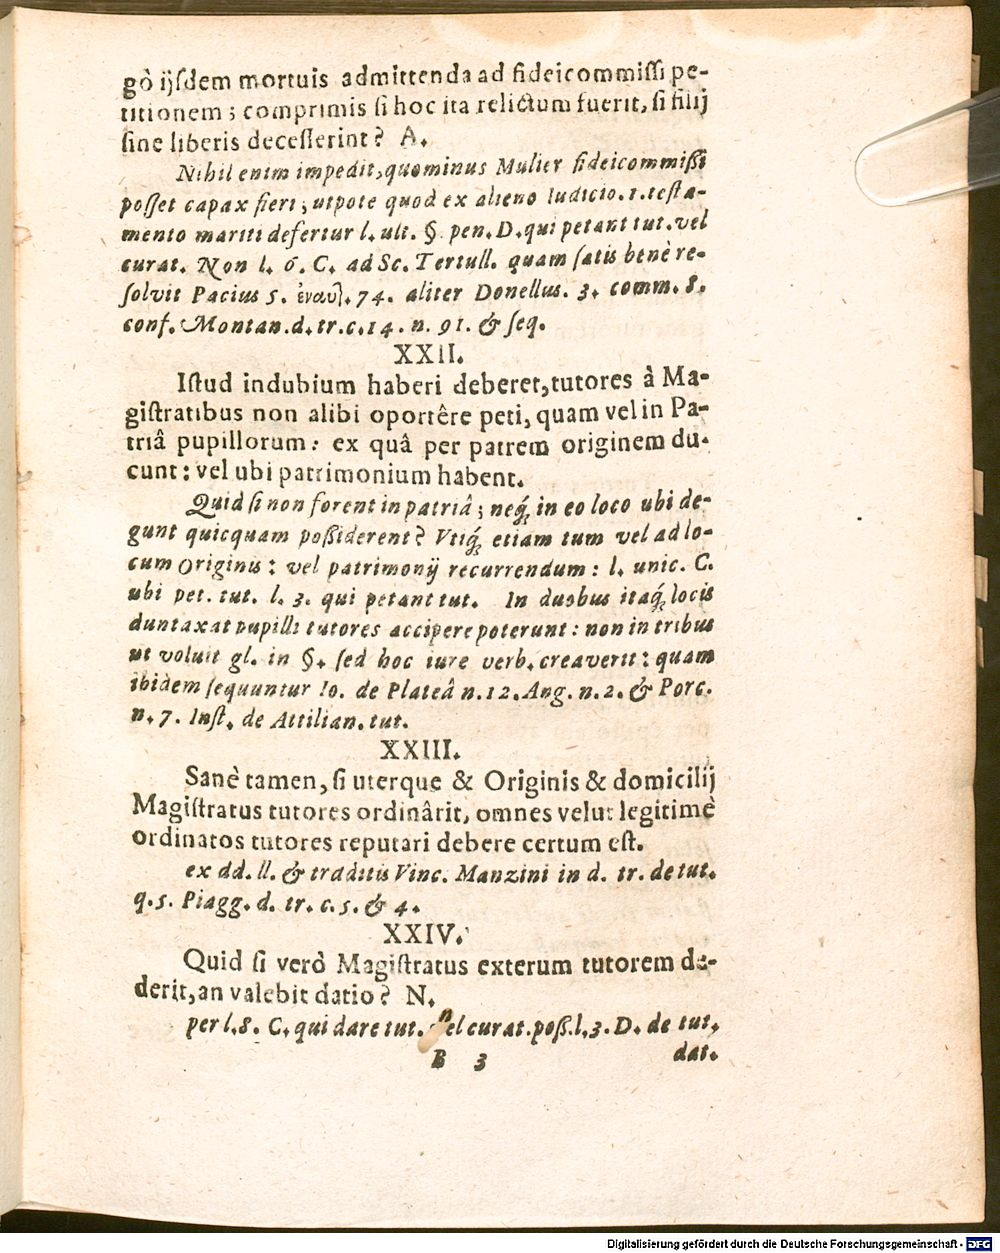 gò ijſdem mortuis admittenda ad fideicommiſſi pe-
titionem; comprimis ſi hoc ita relictum fuerit, ſi filij
ſine liberis deceſſerint? A.
Nihil enim impedit, quominus Mulier fideicommiſſi
poſſet capax fieri, utpote quod ex alieno Iudicio. 1. teſta-
mento mariti defertur l. ult. §. pen. D. qui petant tut. vel
curat. Non l. 6. C. ad Sc. Tertull. quam ſatis benè re-
ſolvit Pacius 5. 74. aliter Donellus. 3. comm. 8.
conf. Montan. d. tr. c. 14. n. 91. & ſeq.
XXII.
Iſtud indubium haberi deberet, tutores à Ma-
giſtratibus non alibi oportêre peti, quam vel in Pa-
triâ pupillorum: ex quâ per patrem originem du-
cunt: vel ubi patrimonium habent.
Quid ſi non forent in patriâ; neq́; in eo loco ubi de-
gunt quicquam poßiderent? Vtiq́; etiam tum vel ad lo-
cum Originis: vel patrimonij recurrendum: l. unic. C.
ubi pet. tut. l. 3. qui petant tut. In duobus itaq́; locis
duntaxat pupilli tutores accipere poterunt: non in tribus
ut voluit gl. in §. ſed hoc iure verb. creaverit: quam
ibidem ſequuntur Io. de Plateâ n. 12. Ang. n. 2. & Porc.
n. 7. Inſt. de Attilian. tut.
XXIII.
Sanè tamen, ſi uterque & Originis & domicilij
Magiſtratus tutores ordinârit, omnes velut legitimè
ordinatos tutores reputari debere certum eſt.
ex dd. ll. & traditis Vinc. Manzini in d. tr. de tut.
q. 5. Piagg. d. tr. c. 5. & 4.
XXIV.
Quid ſi verò Magiſtratus exterum tutorem de-
derit, an valebit datio? N.
per l. 8. C. qui dare tut. vel curat. poß. l. 3. D. de tut.
B 3 dat.
Digitalisierung gefördert durch die Deutsche Forschungsgemeinschaft - DFG